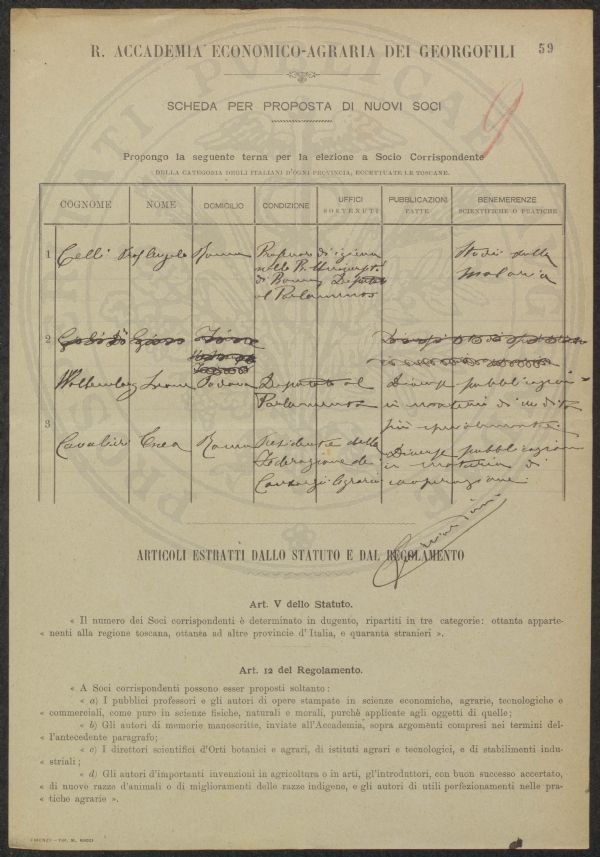 R. ACCADEMIA ECONOMICO-AGRARIA DEI GEORGOFILI
59
9
SCHEDA PER PROPOSTA DI NUOVI SOCI
Propongo la seguente terna per la elezione a Socio Corrispondente
DELLA CATEGORIA DEGLI ITALIANI D'OGNI PROVINCIA, ECCETTUATE LE TOSCANE.
COGNOME NOME DOMICILIO CONDIZIONE UFFICI SOSTENUTI PUBBLICAZIONI FATTE BENEMERENZE SCIENTIFICHE O PRATICHE
1 Celli Prof Angelo Roma Professore di igiene Studi sulla
nella R. Università malaria
di Roma, Deputato
al Parlamento
2
Wollemborg Leone Padova Deputato al Diverse pubblicazioni
Parlamento in materia di credito
più specialmente
3
Cavalieri Enea Roma Presidente della Diverse pubblicazioni
Federazione dei in materia di
Consorzi Agrari cooperazione
ARTICOLI ESTRATTI DALLO STATUTO E DAL REGOLAMENTO
Art. V dello Statuto.
« Il numero dei Soci corrispondenti è determinato in dugento, ripartiti in tre categorie: ottanta apparte-
« nenti alla regione toscana, ottanta ad altre provincie d'Italia, e quaranta stranieri ».
Art. 12 del Regolamento.
« A Soci corrispondenti possono esser proposti soltanto:
« a) I pubblici professori e gli autori di opere stampate in scienze economiche, agrarie, tecnologiche e
« commerciali, come pure in scienze fisiche, naturali e morali, purchè applicate agli oggetti di quelle;
« b) Gli autori di memorie manoscritte, inviate all'Accademia, sopra argomenti compresi nei termini del-
« l'antecedente paragrafo;
« c) I direttori scientifici d'Orti botanici e agrari, di istituti agrari e tecnologici, e di stabilimenti indu-
« striali;
« d) Gli autori d'importanti invenzioni in agricoltura o in arti, gl'introduttori, con buon successo accertato,
« di nuove razze d'animali o di miglioramenti delle razze indigene, e gli autori di utili perfezionamenti nelle pra-
« tiche agrarie ».
FIRENZE – TIP. M. RICCI